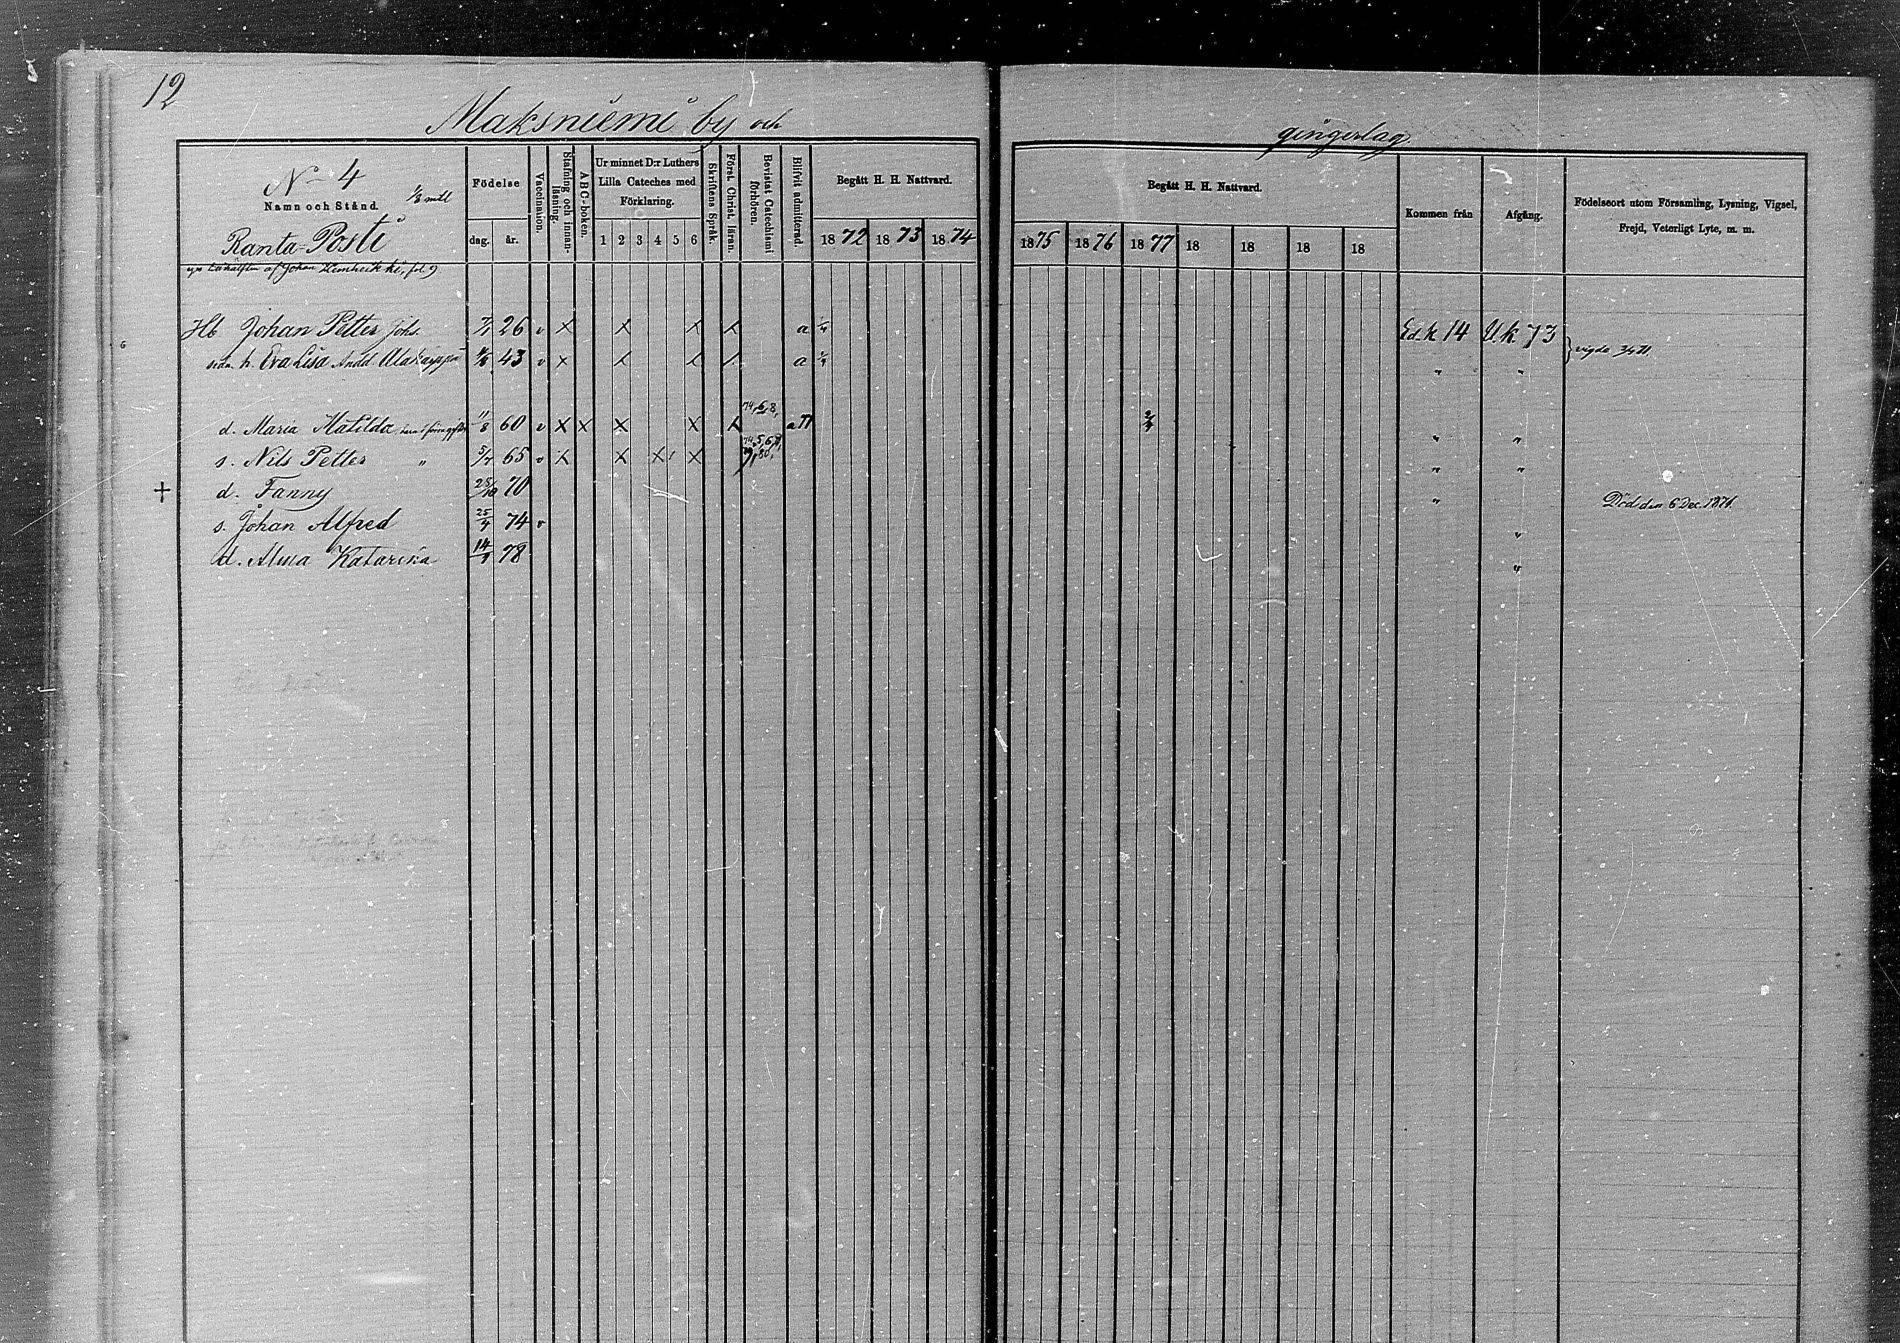 12
Maksniemi by och gingerlag
No 4 1/8 mtl
Namn och Stånd.
Ranta-Posti
af Johan fol 9
Födelse
dag. år.
Vaccination.
Stafning och innan-läsning.
ABC-boken.
Ur minnet D:r Luthers Lilla Cateches med Förklaring.
1 2 3 4 5 6
Skriftens Språk.
Först. Christ. läran.
Bevistat Catechismi förhören.
Blifvit admitterad
Begått H. H. Nattvard.
1872 1873 1874
Begått H. H. Nattvard.
1875 1876 1877 18 18 18 18
Kommen från
Afgång.
Födelseort utom Församling, Lysning, Vigsel, Frejd, Veterligt Lyte, m. m.
Hb Johan Petter Johs. 26 v x x x x a Ed. k 14 U. k 73
h. Eva Lisa Andd Alakärppä 43 v x x x x a " " vigde
d. Maria Matilda 11/8 60 v x x x x x 74, 6, 8, a 77 " "
s. Nils Petter " 5/4 65 v x x x x 74, 5, 6, 80, " "
+ d. Fanny 25/10 70 " Död den 6 Dec. 1871.
s. Johan Alfred 25/4 74 v "
d. Alma Katarina 78 "